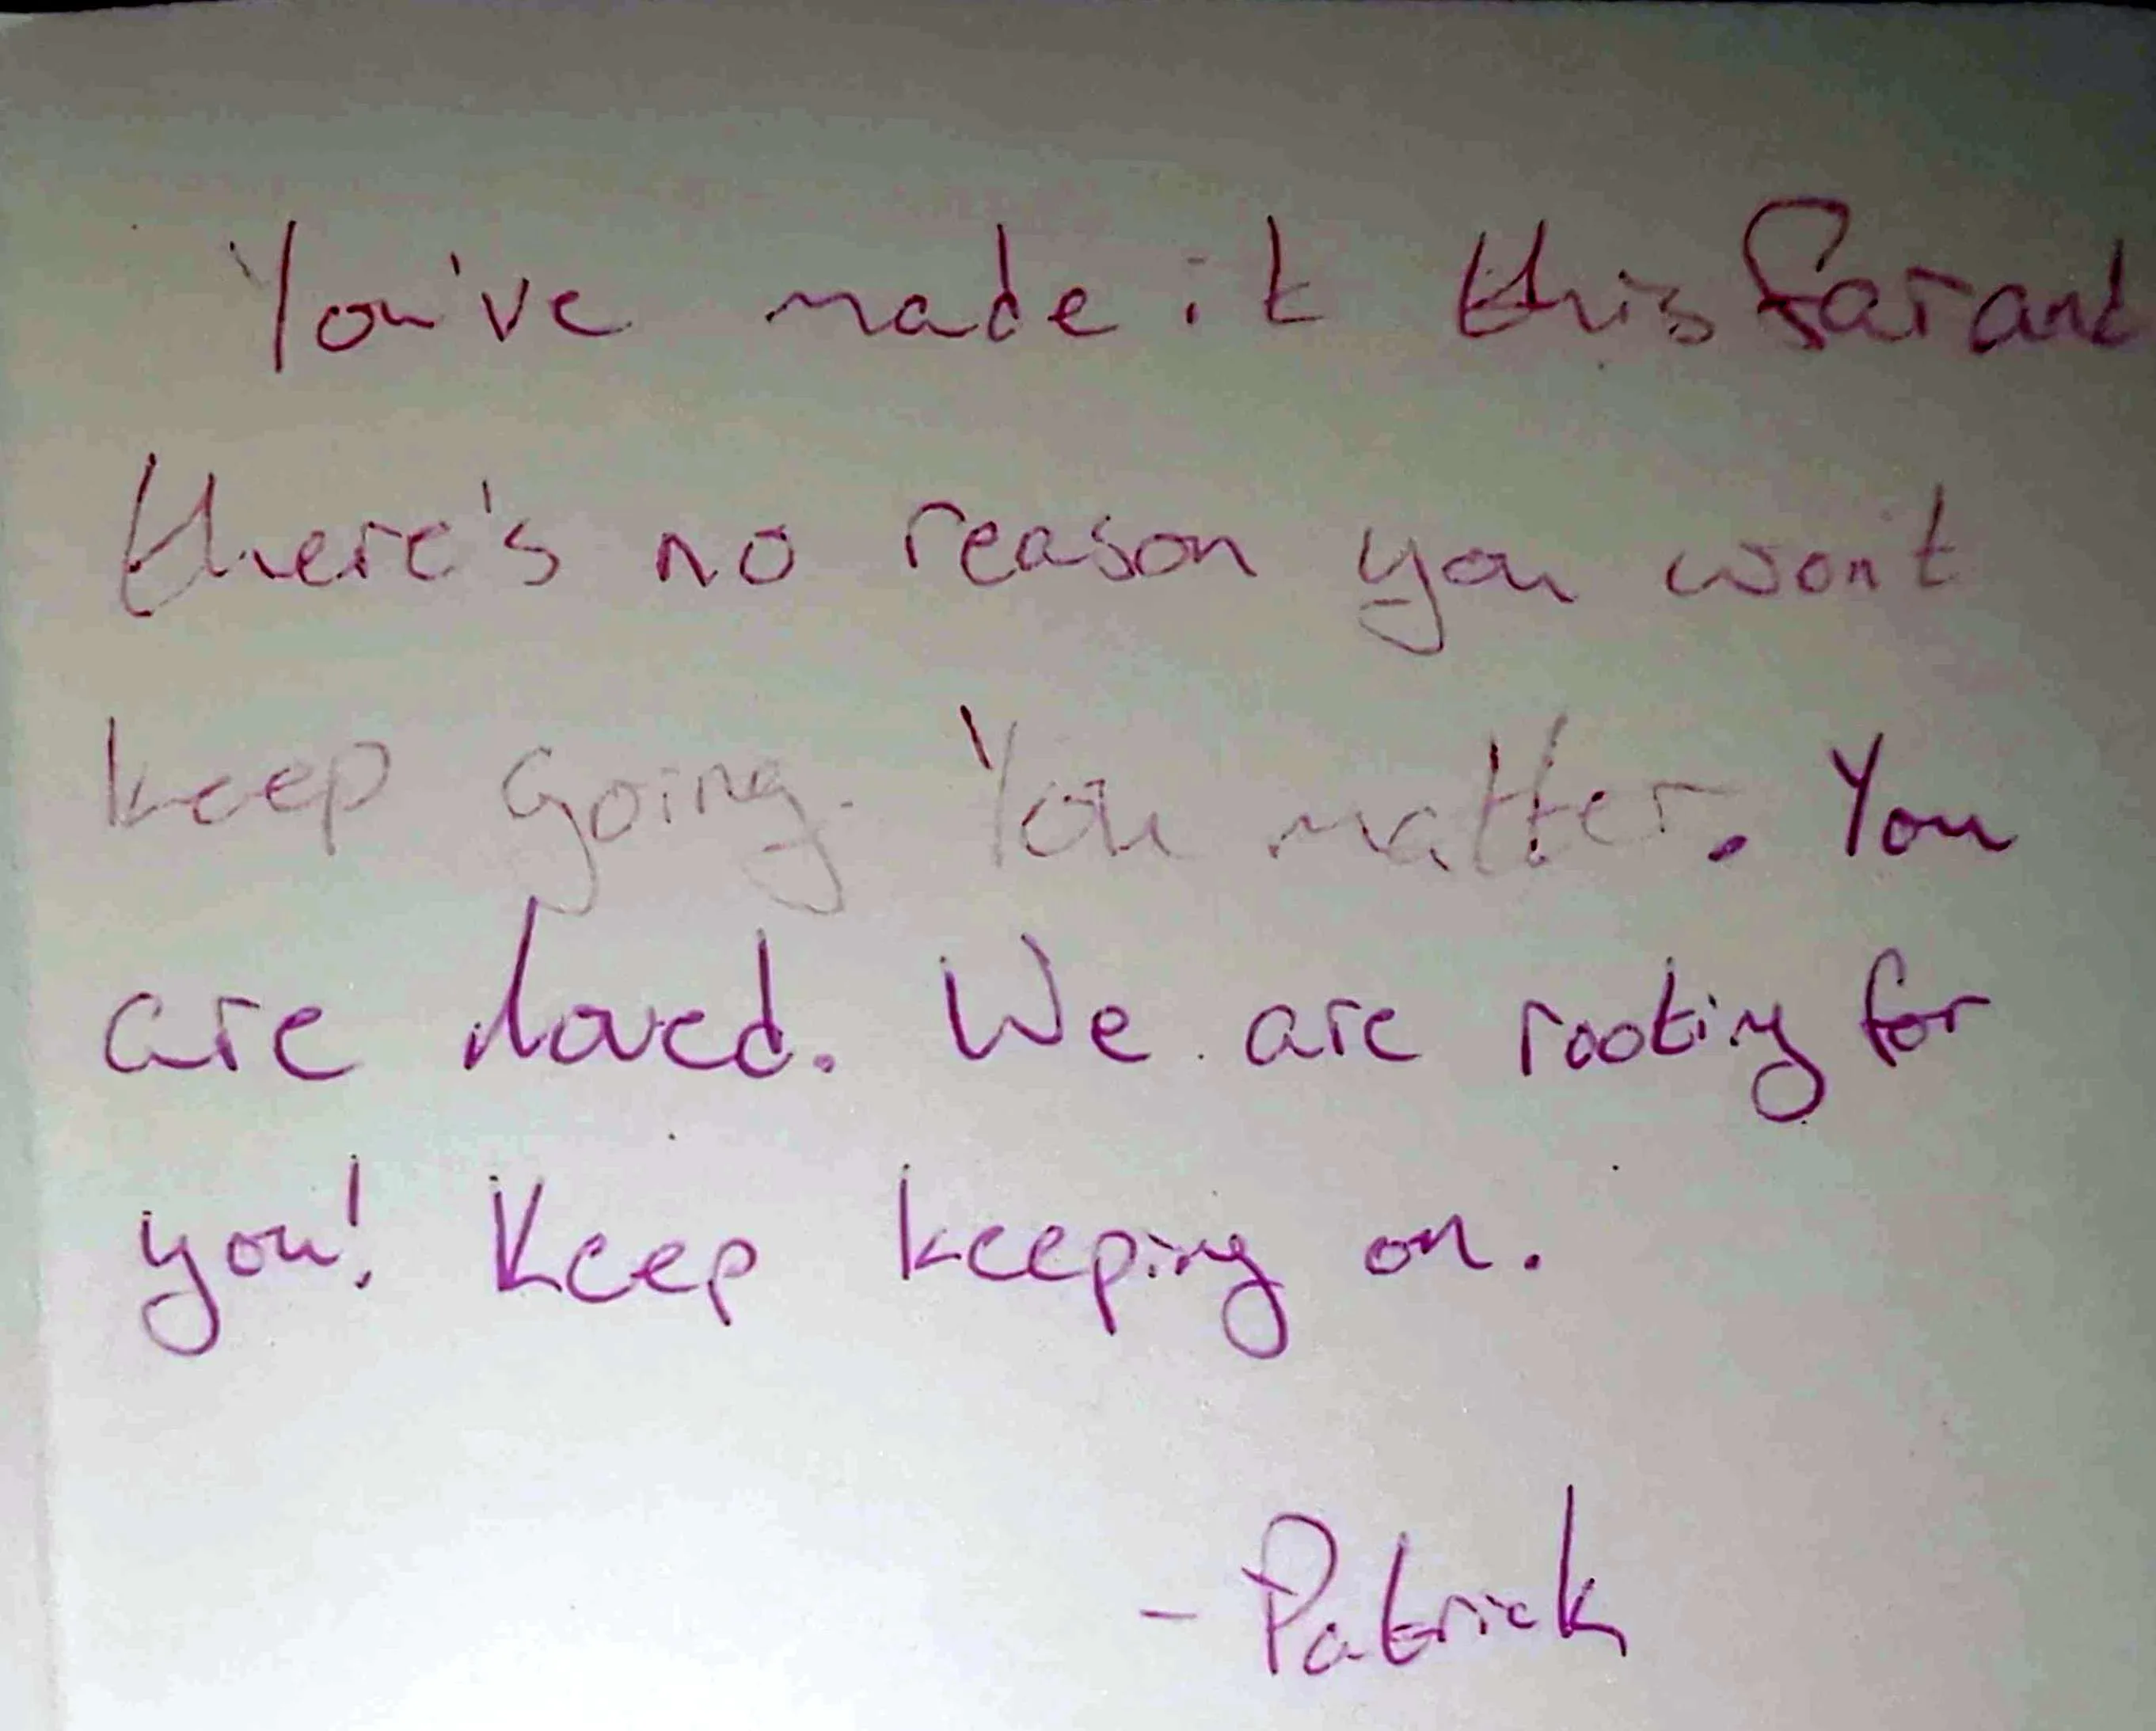 You've made it this far and
there's no reason you won't
keep going. You matter. You
are loved. We are rooting for
you! Keep keeping on.
- Patrick